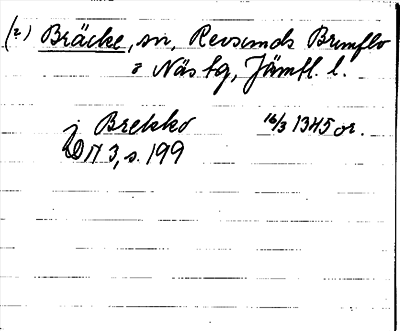 (2) Bräcke, sn, Revsunds Brunflo
o Näs tg, Jämtl. l.
j Brekko 16/3 1345 or.
DN 3, s. 199